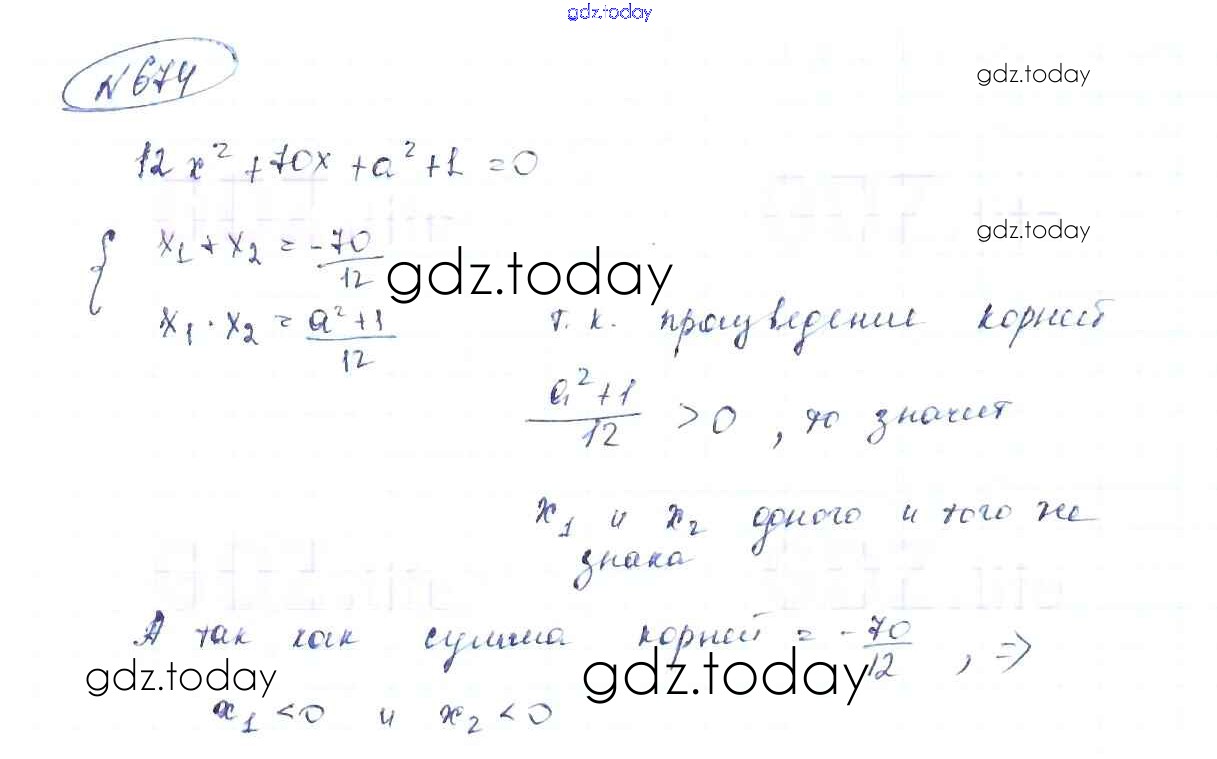 gdz.today
№ 674
gdz.today
12x² + 70x + a² + 1 = 0
gdz.today
{ x₁ + x₂ = -70/12
gdz.today
x₁ · x₂ = (a² + 1)/12
т. к. произведение корней
(a² + 1)/12 > 0, то значит
x₁ и x₂ одного и того же
знака
А так как сумма корней = -70/12, ⇒
gdz.today
gdz.today
x₁ < 0 и x₂ < 0